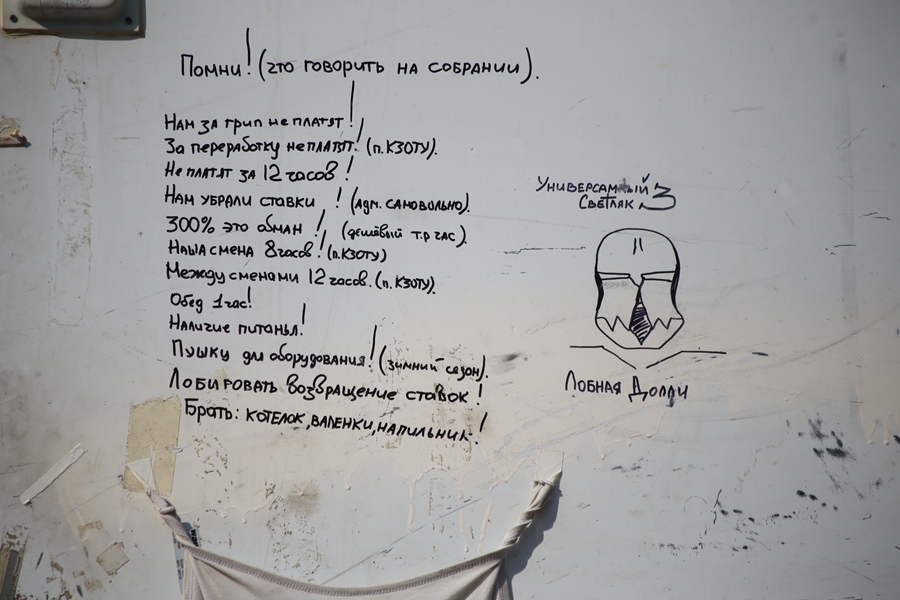 Помни! (что говорить на собрании).
Нам за грип не платят!
За переработку не платят! (п. КЗОТУ).
Не платят за 12 часов!
Нам убрали ставки! (адм. самовольно).
300% это обман! (дешёвый т.р час).
Наша смена 8 часов! (п. КЗОТУ)
Между сменами 12 часов. (п. КЗОТУ).
Обед 1 час!
Наличие питанья!
Пушку для оборудования! (зимний сезон).
Лобировать возвращение ставок!
Брать: котелок, валенки, напильник!
Универсамный
Светляк 3
Лобная Долли